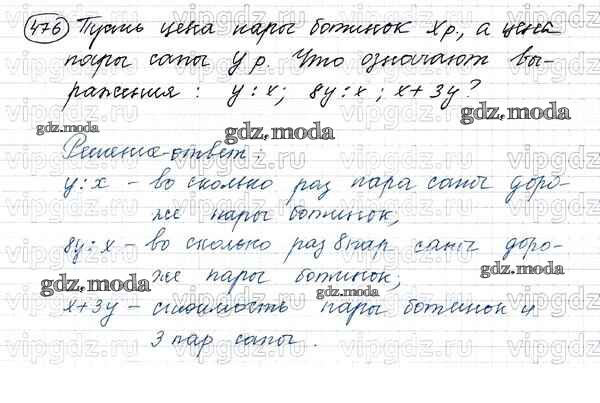 476 Пусть цена пары ботинок x р., а цена
пары сапог y р. Что означают вы-
ражения: y:x; 8y:x; x+3y?
gdz.moda
gdz.moda
Решение-ответ:
y:x – во сколько раз пара сапог доро-
же пары ботинок;
8y:x – во сколько раз 8 пар сапог доро-
же пары ботинок;
gdz.moda
gdz.moda
gdz.moda
x+3y – стоимость пары ботинок и
3 пар сапог.